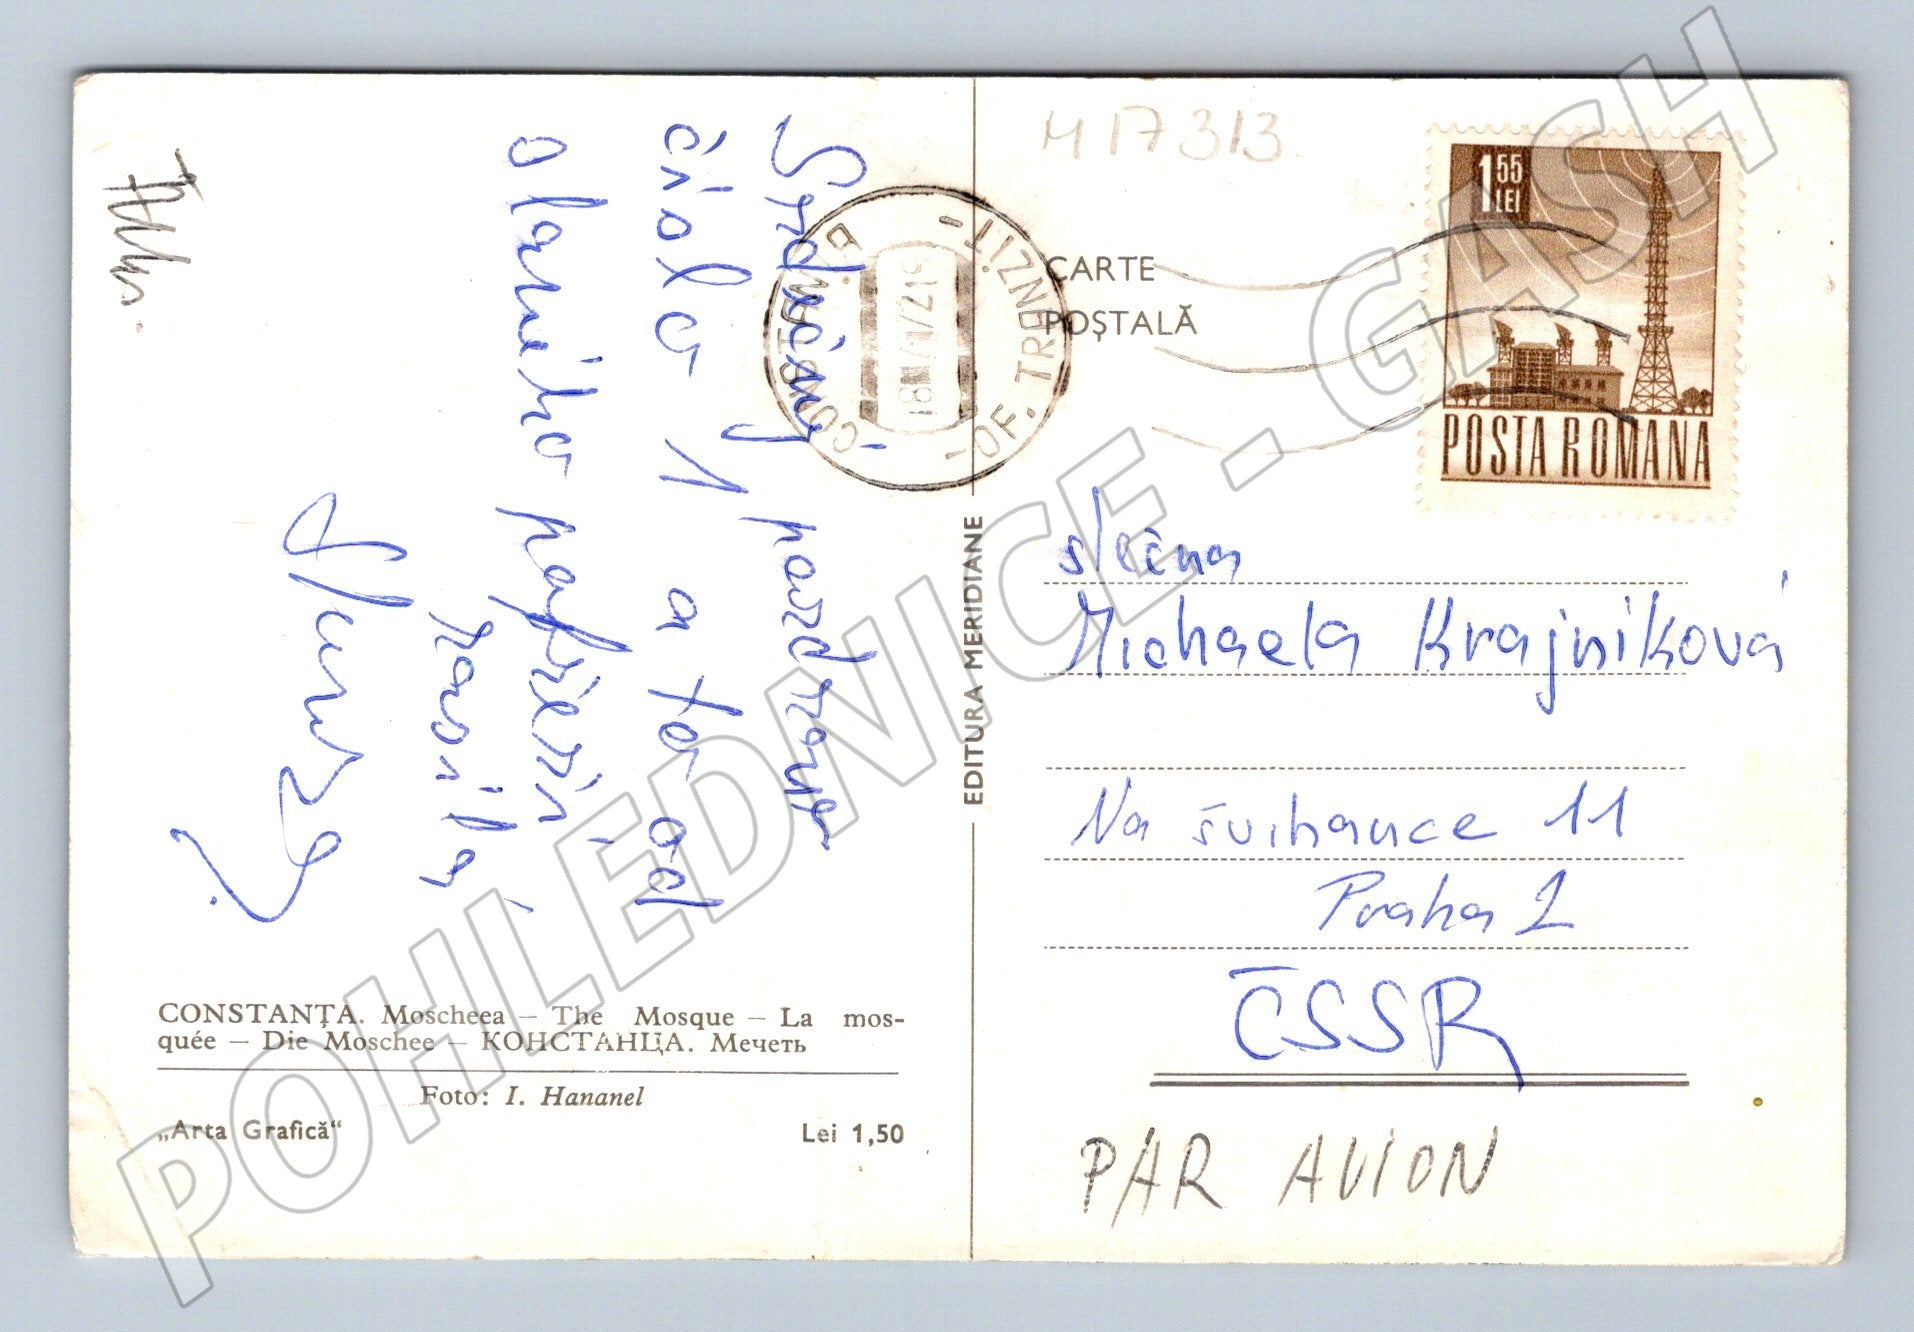 Srdečný pozdrav
číslo 1 a to od
slaného pobřeží
posílá
CONSTANȚA. Moscheea – The Mosque – La mos-
quée – Die Moschee – КОНСТАНЦА. Мечеть
Foto: I. Hananel
„Arta Grafică“
Lei 1,50
EDITURA MERIDIANE
M 17313
CARTE
POȘTALĂ
CONSTANȚA
OF. TRANZIT
1 55
LEI
POSTA ROMANA
slečna
Michaela Krajníková
Na švihance 11
Praha 2
ČSSR
PAR AVION
POHLEDNICE - GASH